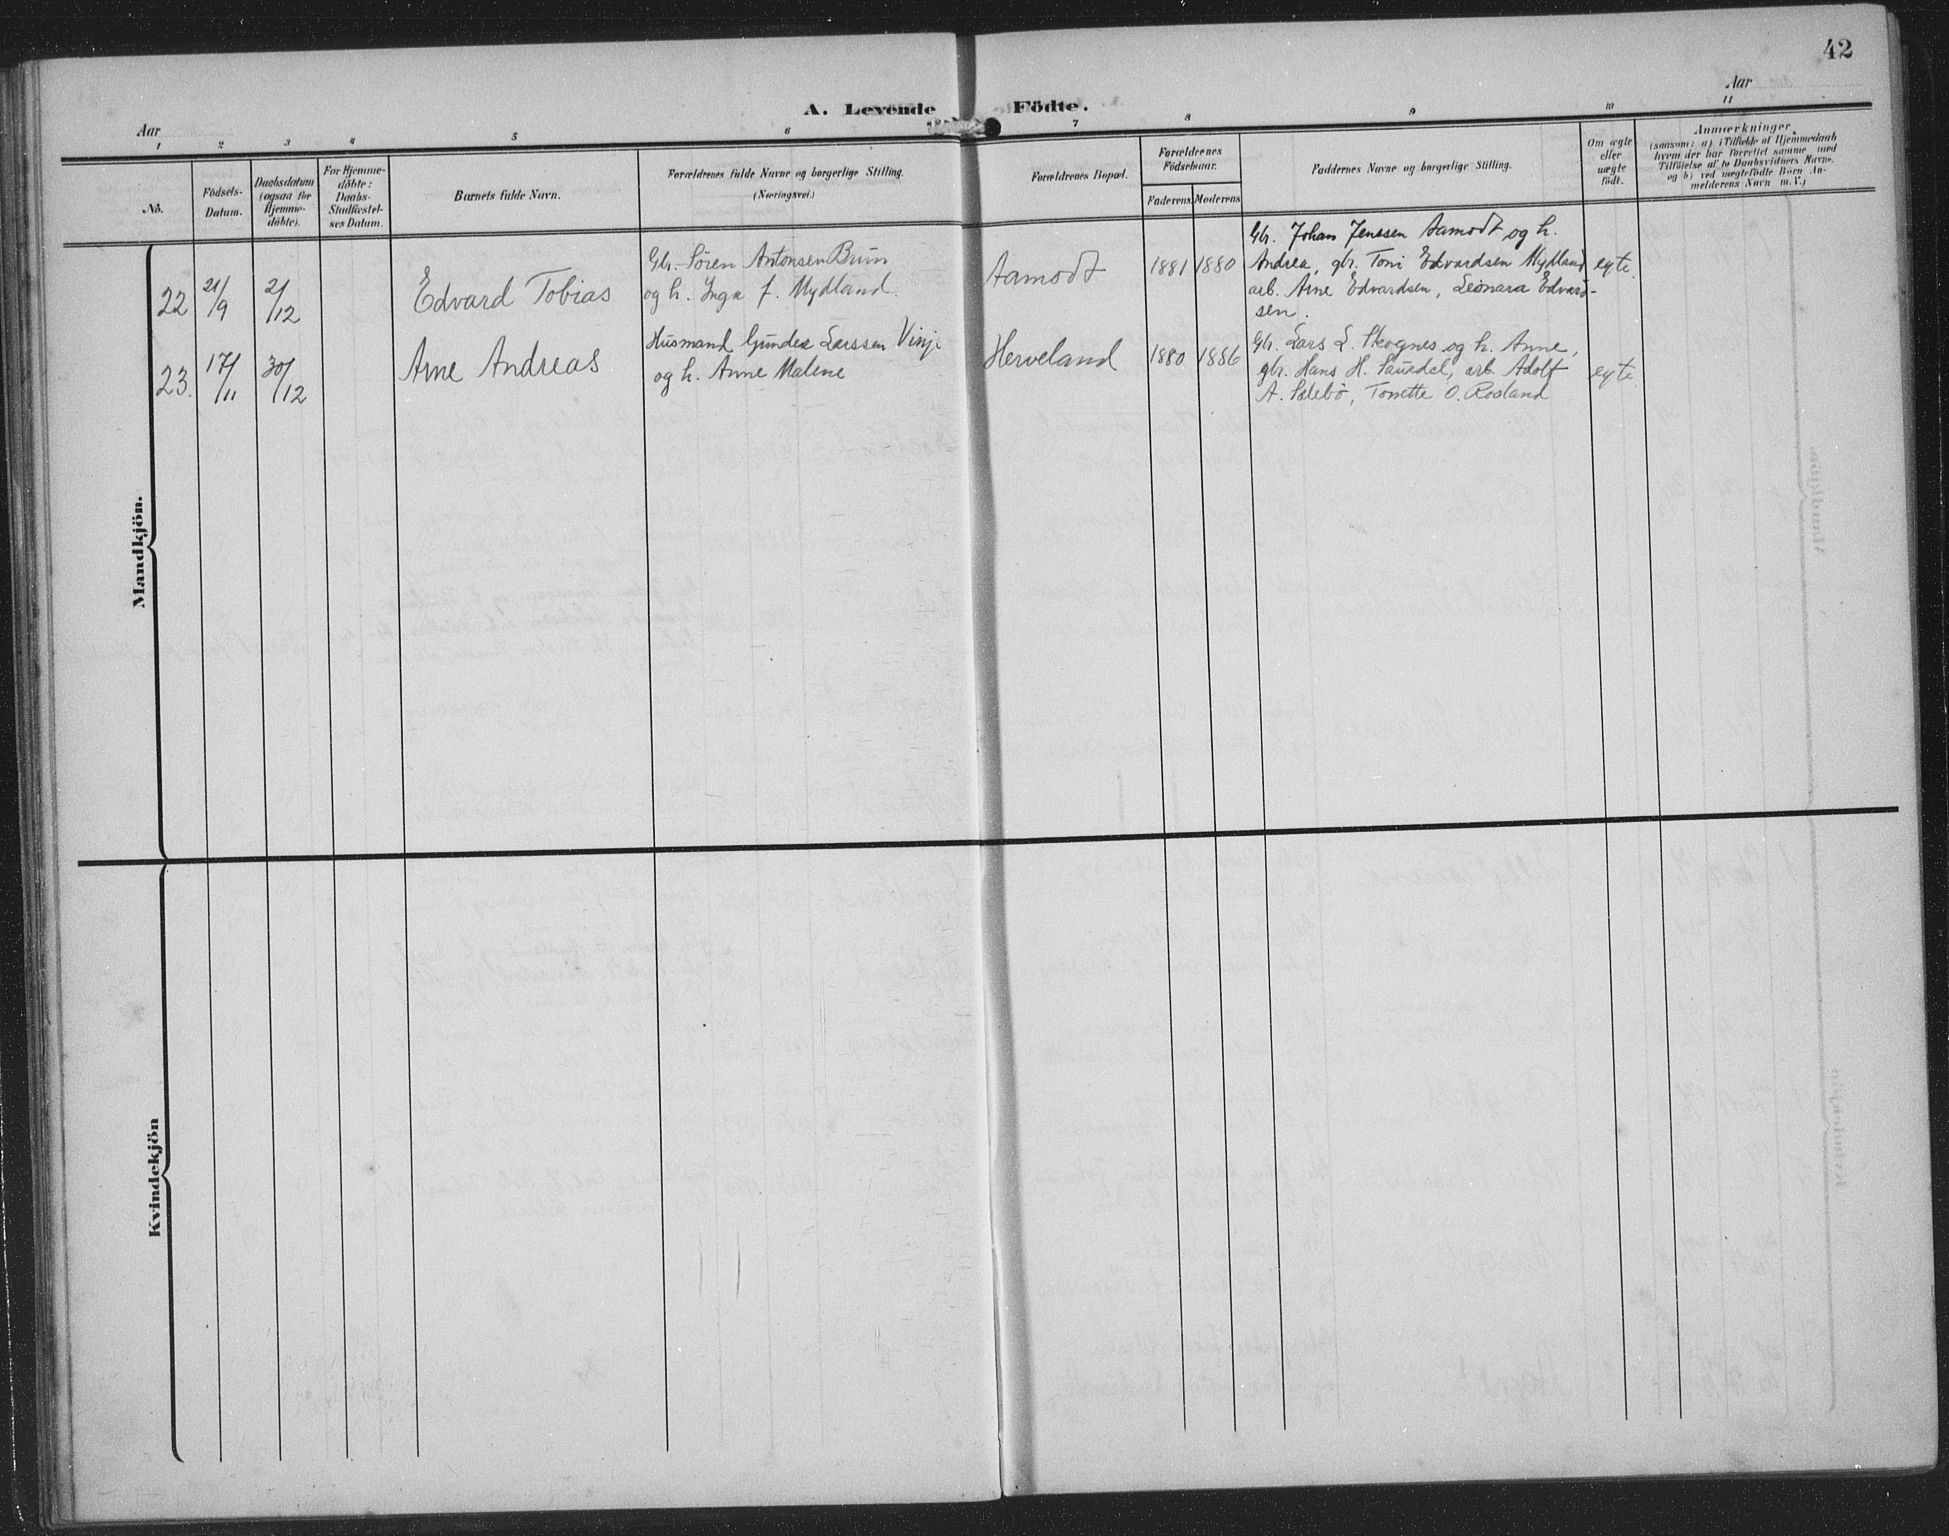 42
A. Levende Födte.
Aar
Aar
1 2 3 4 5 6 7 8 9 10 11
No.
Födsels-
Datum.
Daabsdatum
(ogsaa for
Hjemme-
döbte).
For Hjemme-
döbte:
Daabs-
Stadfæstel-
ses Datum.
Barnets fulde Navn.
Forældrenes fulde Navne og borgerlige Stilling.
(Næringsvei.)
Forældrenes Bopæl.
Forældrenes
Födselsaar.
Faderens Moderens
Faddernes Navne og borgerlige Stilling.
Om ægte
eller
uægte
født.
Anmærkninger.
(saasom: a) i Tilfælde af Hjemmedaab
hvem der har forrettet samme med
Tilföielse af to Daabsvidners Navne.
og b) ved uægtefödte Börn An-
melderens Navn m. V.)
Mandkjön.
22 21/9 2/12
Edvard Tobias
Gbr. Sören Antonsen Brun
og h. Inga f. Mydland.
Aamodt
1881 1880
Gbr. Johan Jenssen Aamodt og h.
Andrea, gbr. Toni Edvardsen Mydland
arb. Arne Edvardsen, Leonara Edvard-
sen.
egte.
23. 17/11 30/12
Arne Andreas
Husmand Gunder Larssen Vinje
og h. Anne Malene
Herveland
1880 1886
Gbr. Lars L. Skognes og h. Anne,
gbr. Hans H. Sauedal, arb. Adolf
A. Sælebö, Tonette O. Rosland
egte.
Kvindekjön